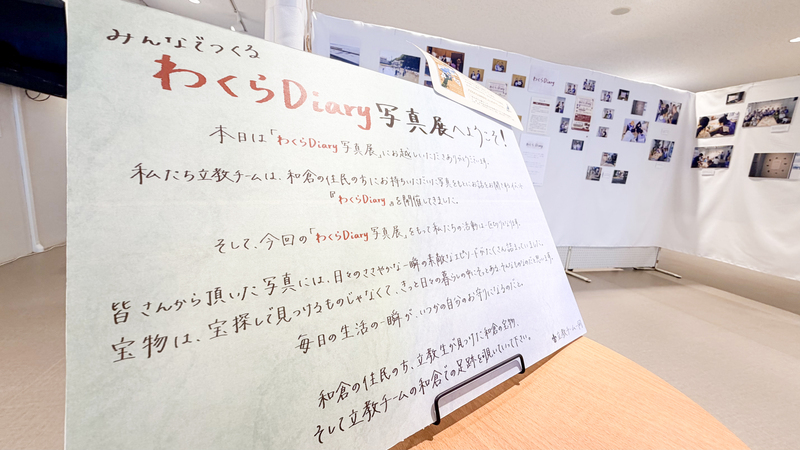 みんなでつくる
わくらDiary写真展へようこそ!
本日は「わくらDiary写真展」にお越しいただきありがとうございます。
私たち立教チームは、和倉の住民の方にお持ちいただいた写真をもとにお話をお聞きする
『わくらDiary』を開催してきました。
そして、今回の「わくらDiary写真展」をもって私たちの活動は一区切りとなります。
皆さんから頂いた写真には、日々のささやかな一瞬の素敵なエピソードがたくさん詰まっていました。
宝物は、宝探しで見つけるものじゃなくて、きっと日々の暮らしの中にそっとある、そんなものなのだと思います。
毎日の生活の一瞬が、いつかの自分のお守りになるのだと。
和倉の住民の方、立教生が見つけた和倉の宝物、
そして立教チームの和倉での足跡を覗いていって下さい。
立教チーム一同
わくらDiary